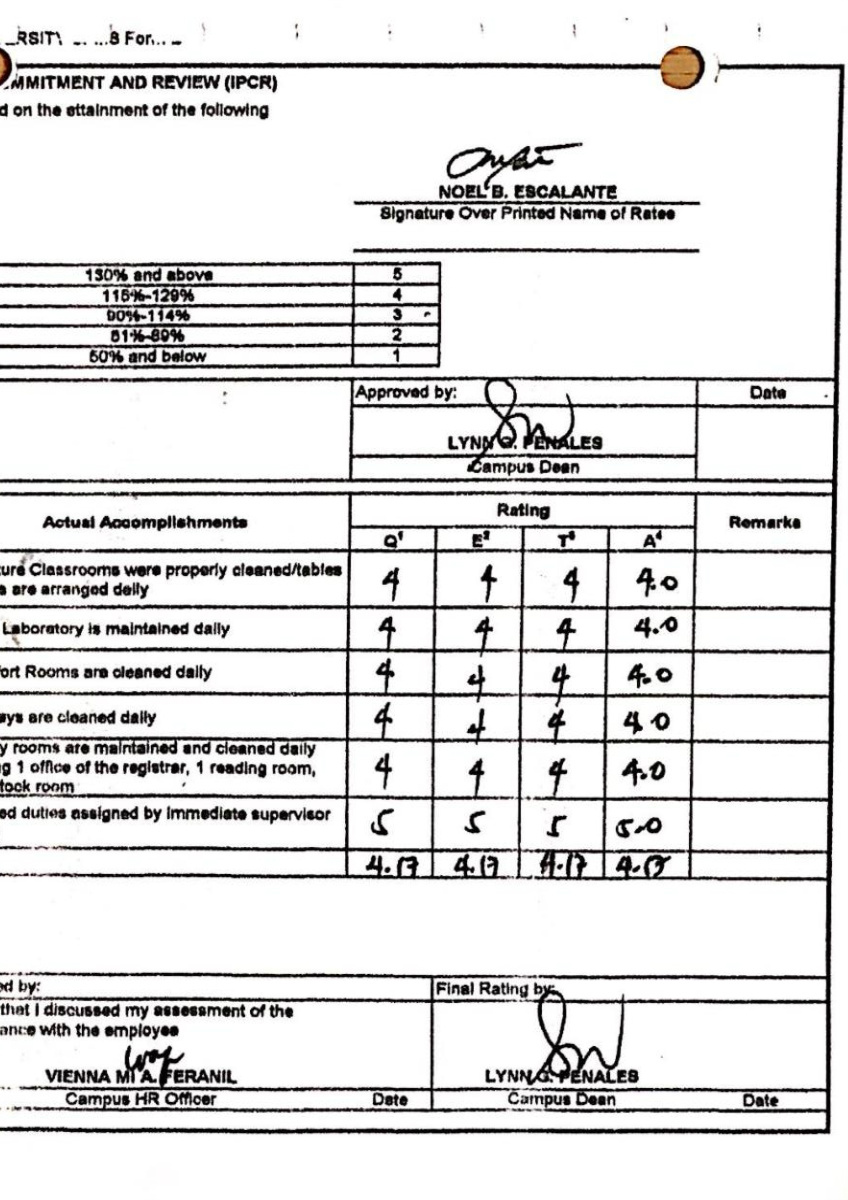 8 For
MMITMENT AND REVIEW (IPCR)
d on the attainment of the following
NOEL B. ESCALANTE
Signature Over Printed Name of Ratee
130% and above 5
115%-129% 4
90%-114% 3
51%-89% 2
50% and below 1
Approved by: Date
LYNN G. PENALES
Campus Dean
Actual Accomplishments Rating Remarks
Q¹ E² T³ A⁴
ure Classrooms were properly cleaned/tables
s are arranged daily 4 4 4 4.0
Laboratory is maintained daily 4 4 4 4.0
fort Rooms are cleaned daily 4 4 4 4.0
ays are cleaned daily 4 4 4 4.0
y rooms are maintained and cleaned daily
g 1 office of the registrar, 1 reading room,
tock room 4 4 4 4.0
ed duties assigned by immediate supervisor 5 5 5 5.0
4.17 4.17 4.17 4.17
ed by: Final Rating by:
that I discussed my assessment of the
ance with the employee
VIENNA MI A. FERANIL LYNN G. PENALES
Campus HR Officer Date Campus Dean Date